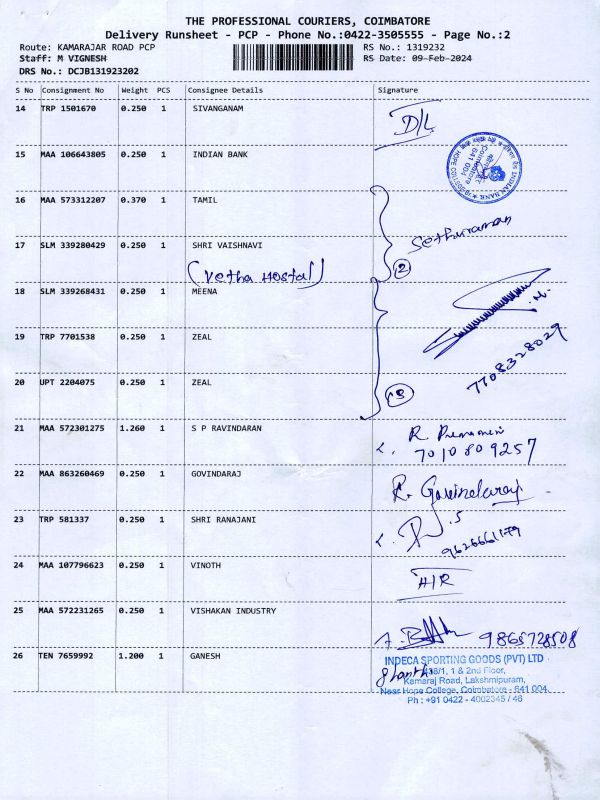 THE PROFESSIONAL COURIERS, COIMBATORE
Delivery Runsheet - PCP - Phone No.:0422-3505555 - Page No.:2
Route: KAMARAJAR ROAD PCP RS No.: 1319232
Staff: M VIGNESH RS Date: 09-Feb-2024
DRS No.: DCJB131923202
S No Consignment No Weight PCS Consignee Details Signature
14 TRP 1501670 0.250 1 SIVANGANAM
D/L
15 MAA 106643805 0.250 1 INDIAN BANK
16 MAA 573312207 0.370 1 TAMIL
Sethuraman
17 SLM 339280429 0.250 1 SHRI VAISHNAVI
(Vetha Hostal) 2
18 SLM 339268431 0.250 1 MEENA
19 TRP 7701538 0.250 1 ZEAL
7708328029
20 UPT 2204075 0.250 1 ZEAL
3
21 MAA 572301275 1.260 1 S P RAVINDARAN
R
7010809257
22 MAA 863260469 0.250 1 GOVINDARAJ
R. Govindaraj
23 TRP 581337 0.250 1 SHRI RANAJANI
9626661179
24 MAA 107796623 0.250 1 VINOTH
H/R
25 MAA 572231265 0.250 1 VISHAKAN INDUSTRY
9865728508
26 TEN 7659992 1.200 1 GANESH
INDECA SPORTING GOODS (PVT) LTD
438/1, 1 & 2nd Floor,
Kamaraj Road, Lakshmipuram,
Near Hope College, Coimbatore - 641 004.
Ph : +91 0422 - 4002345 / 46